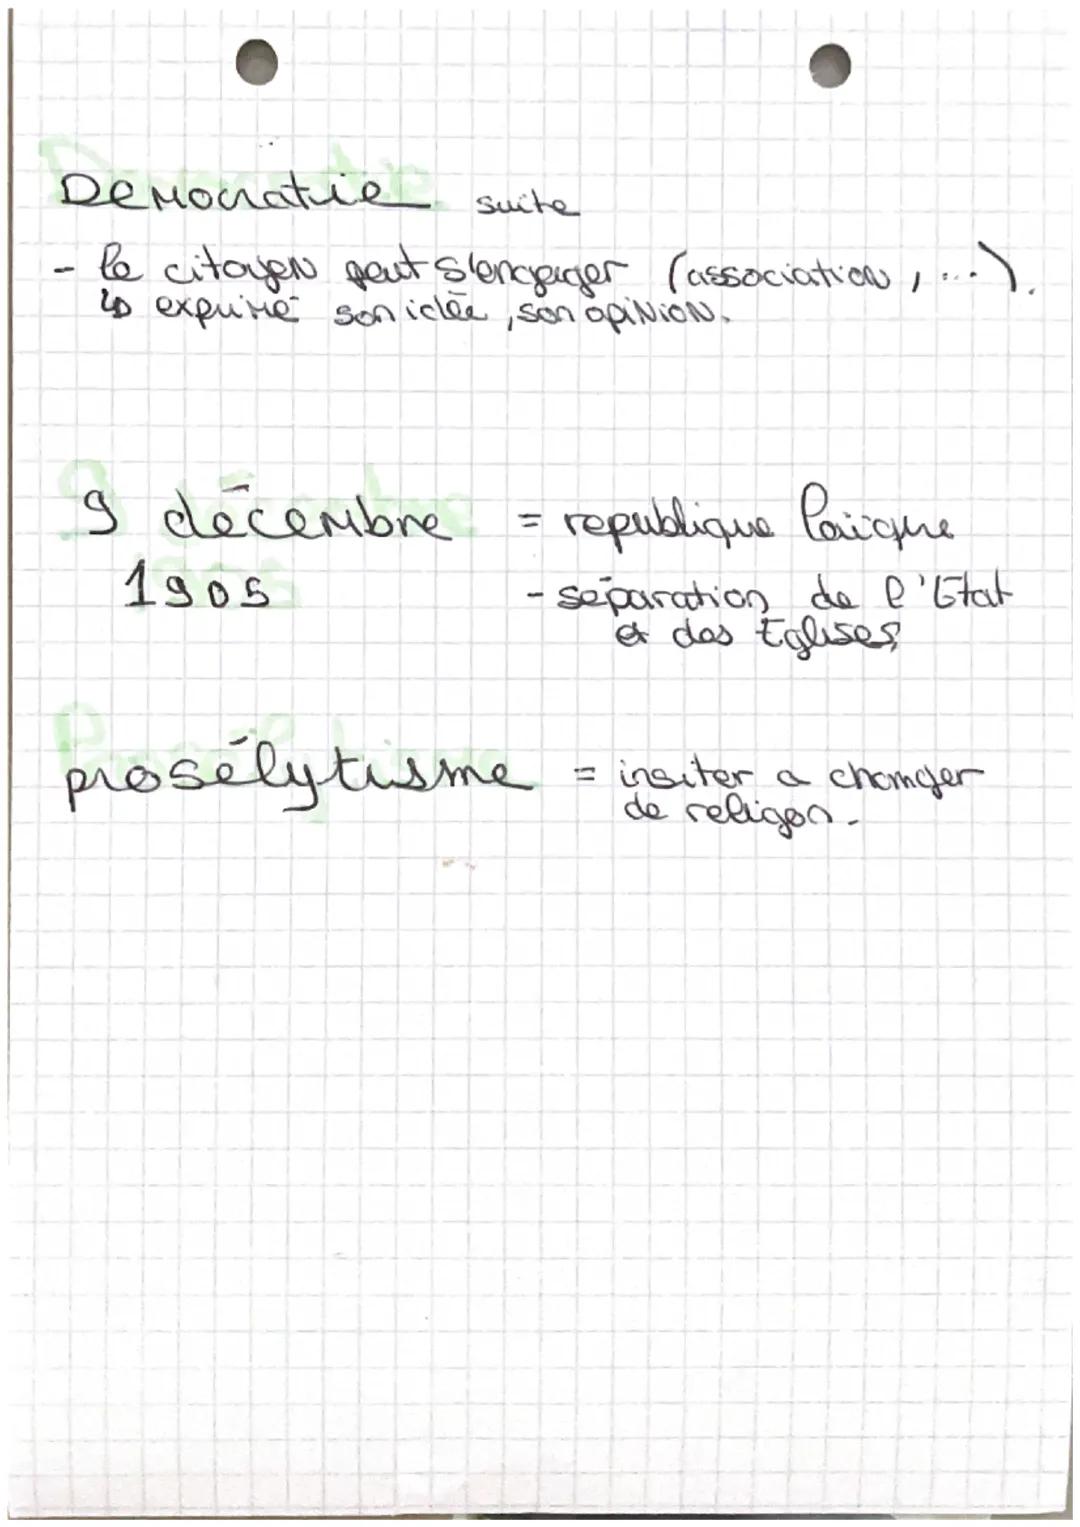 Democratie suite
- le citoyen peut s'engager (association, ...).
↳ exprimé son idée, son opinion.
9 décembre = republique laïque
1905 - séparation de l'Etat
et des Eglises
prosélytisme = insiter a changer
de religon.